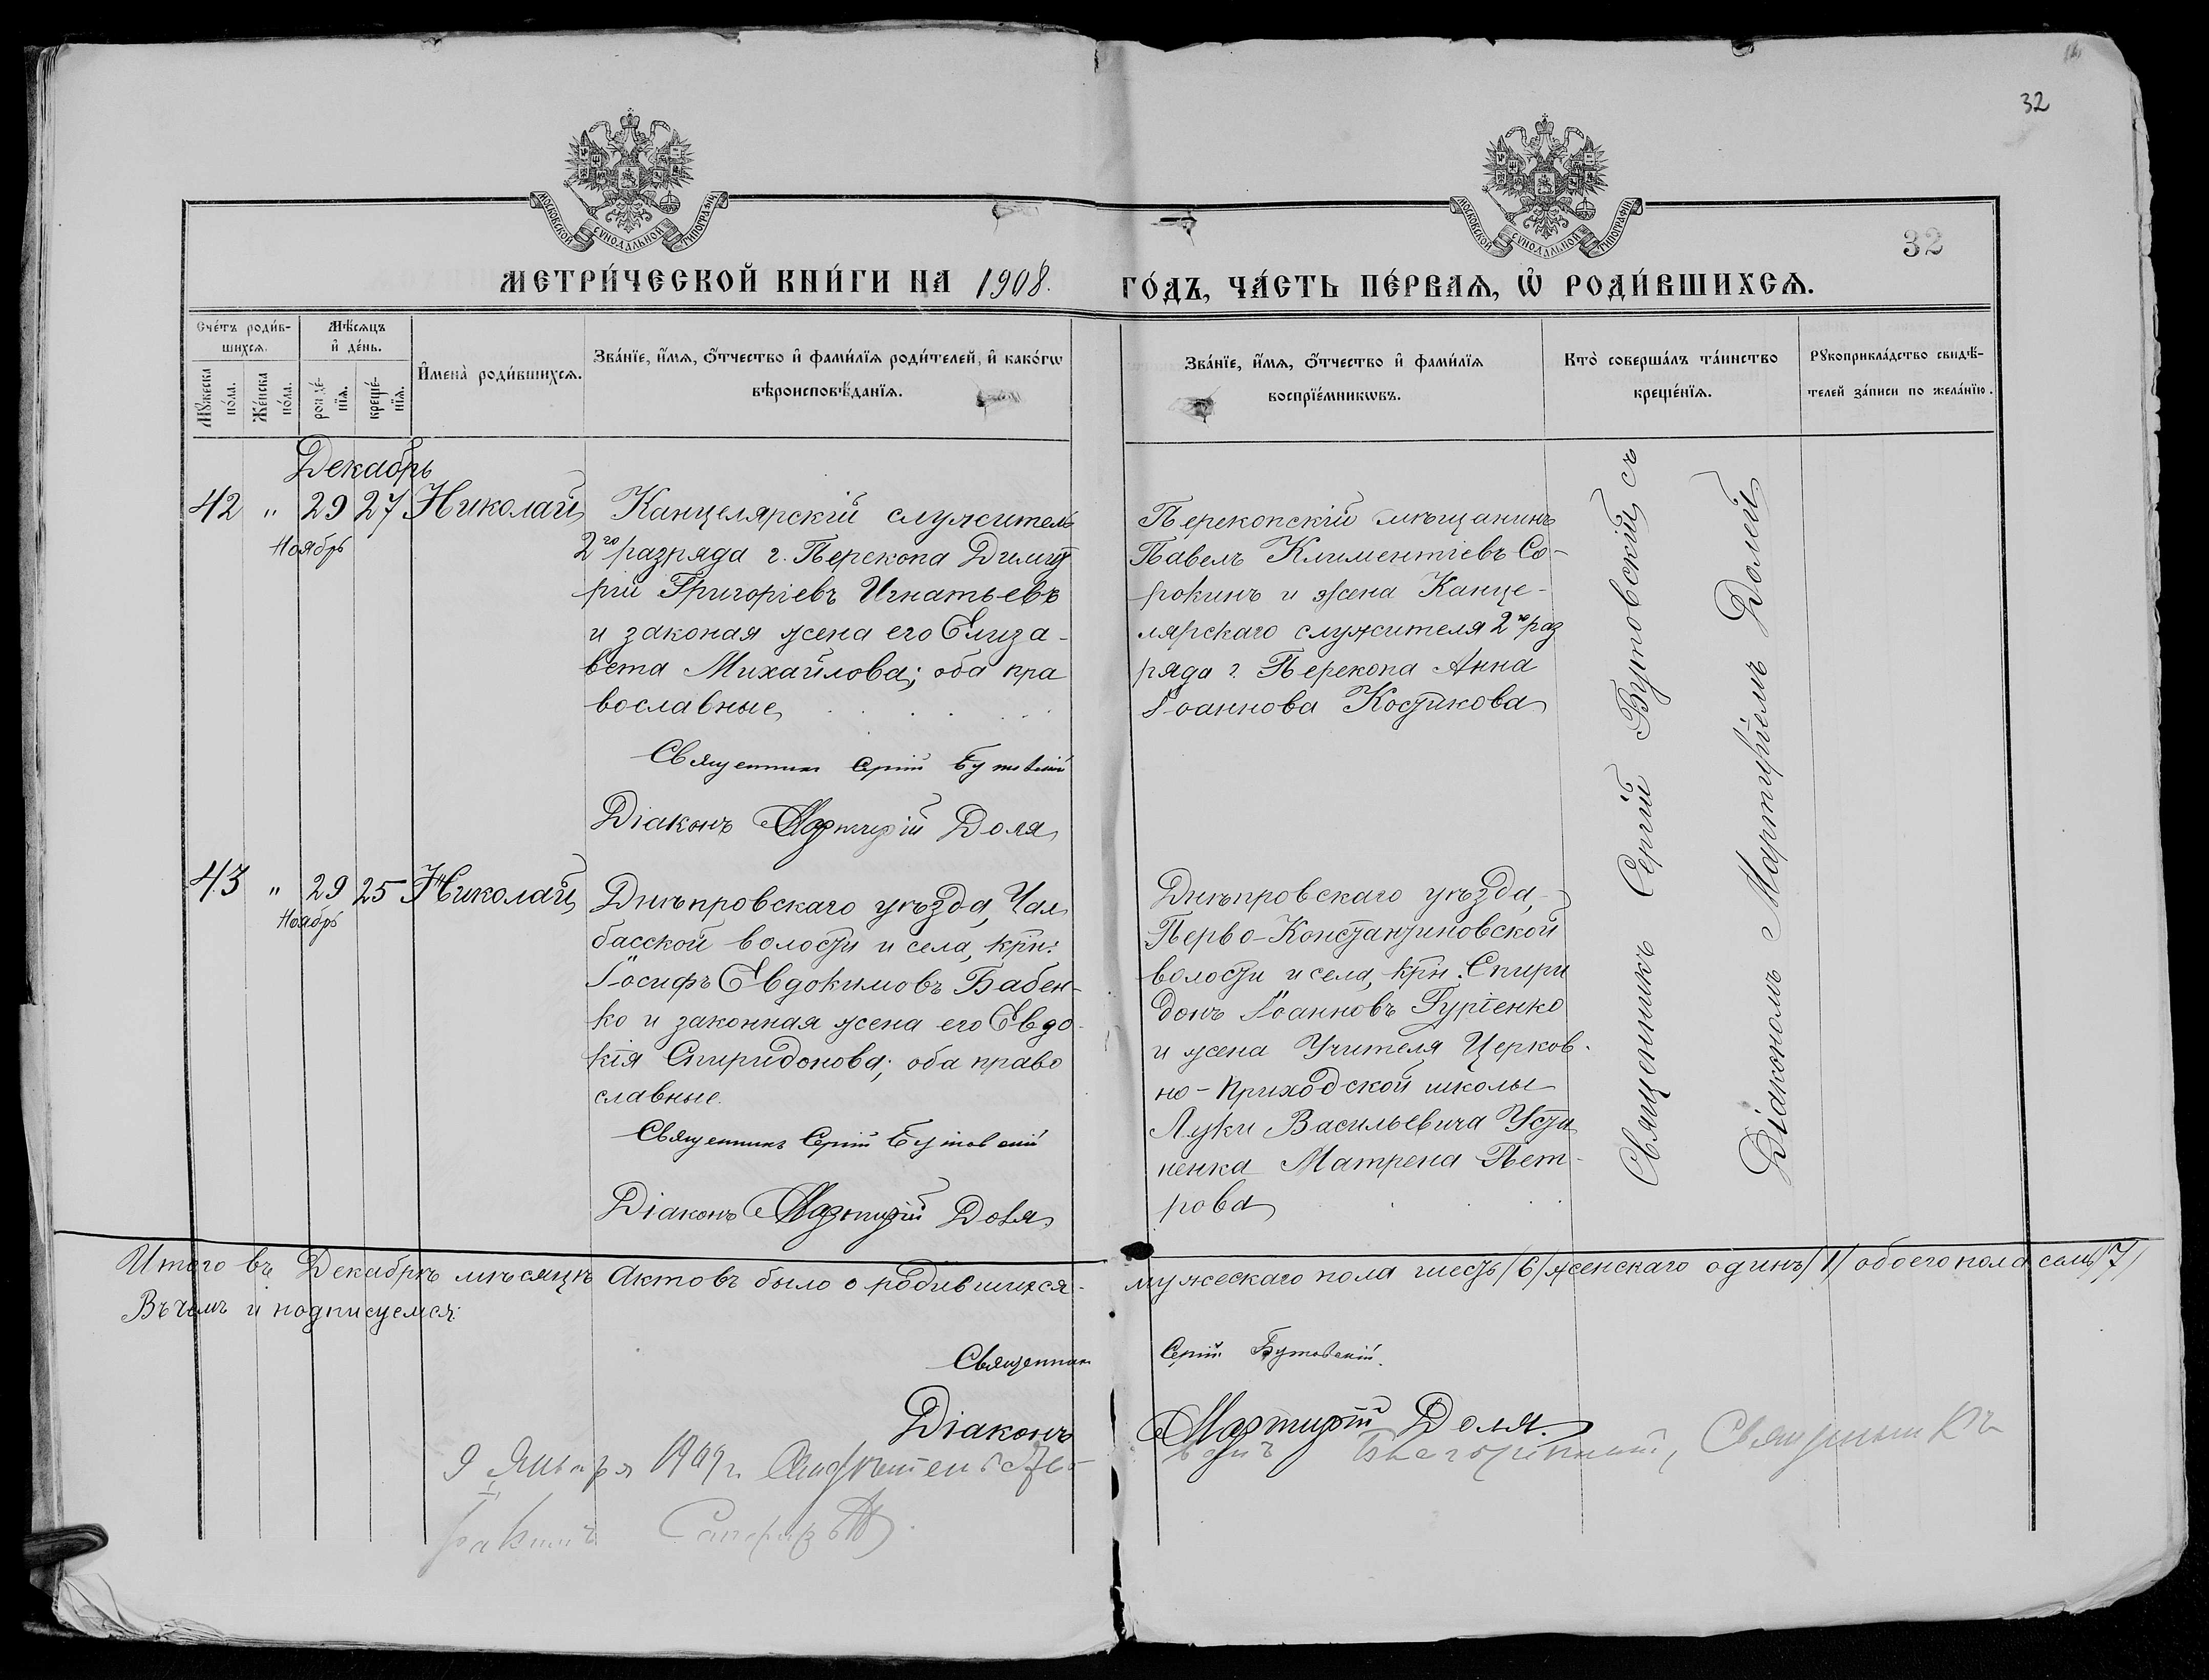 32
МОСКОВСКОЙ СУНОДАЛЬНОЙ ТИПОГРАФІИ
МОСКОВСКОЙ СУНОДАЛЬНОЙ ТИПОГРАФІИ
32
МЕТРИ́ЧЕСКОЙ КНИ́ГИ НА 1908.
ГО́ДЪ, ЧА́СТЬ ПЕ́РВАѦ, Ѽ РОДИ́ВШИХСѦ.
Сче́тъ роди́в-
шихсѧ.
Мѣ́сѧцъ
и҆ де́нь.
Мꙋ́жеска
по́ла.
Же́нска
по́ла.
рожде́-
нїѧ.
креще́-
нїѧ.
И҆мена̀ роди́вшихсѧ.
Зва́нїе, и҆́мѧ, ѻ҆́тчество и҆ фами́лїѧ роди́телей, и҆ како́гѡ
вѣроисповѣ́данїѧ.
Зва́нїе, и҆́мѧ, ѻ҆́тчество и҆ фами́лїѧ
воспрїе́мникѡвъ.
Кто̀ соверша́лъ та́инство
креще́нїѧ.
Рꙋкоприкла́дство свидѣ́-
телей за́писи по жела́нїю.
Декабрь
42 " 29 27 Николай
Ноябрь
Канцелярскій служитель
2го разряда г. Перекопа Димит
рій Григоріевъ Игнатьевъ
и законая жена его Елиза-
вета Михайлова; оба пра
вославные
Священникъ Сергій Бутовскій
Діаконъ Мартирій Доля
Перекопскій мѣщанинъ
Павелъ Климентіевъ Со-
рокинъ и жена Канце-
лярскаго служителя 2го раз
ряда г. Перекопа Анна
Іоаннова Костикова
43 " 29 25 Николай
Ноябрь
Днѣпровскаго уѣзда, Чал
басской волости и села, крн:
Іосифъ Евдокимовъ Бабен-
ко и законная жена его Евдо-
кія Спиридонова; оба право
славные.
Священникъ Сергій Бутовскій
Діаконъ Мартирій Доля
Днѣпровскаго уѣзда,
Перво-Константиновской
волости и села, крн. Спири
донъ Іоанновъ Гургенко
и жена Учителя Церков-
но-приходской школы
Луки Васильевича Усти
ненка Матрена Пет-
рова
Священникъ Сергій Бутовскій съ
Діакономъ Мартиріемъ Долей
Итого въ Декабрѣ мѣсяцѣ Актовъ было о родившихся-
мужескаго пола шесть /6/ женскаго одинъ /1/ обоего пола семь /7/
Въ чемъ и подписуемся:
Священникъ Сергій Бутовскій.
Діаконъ Мартирій Доля.
9 Января 1909 г. Благочинный, Священникъ